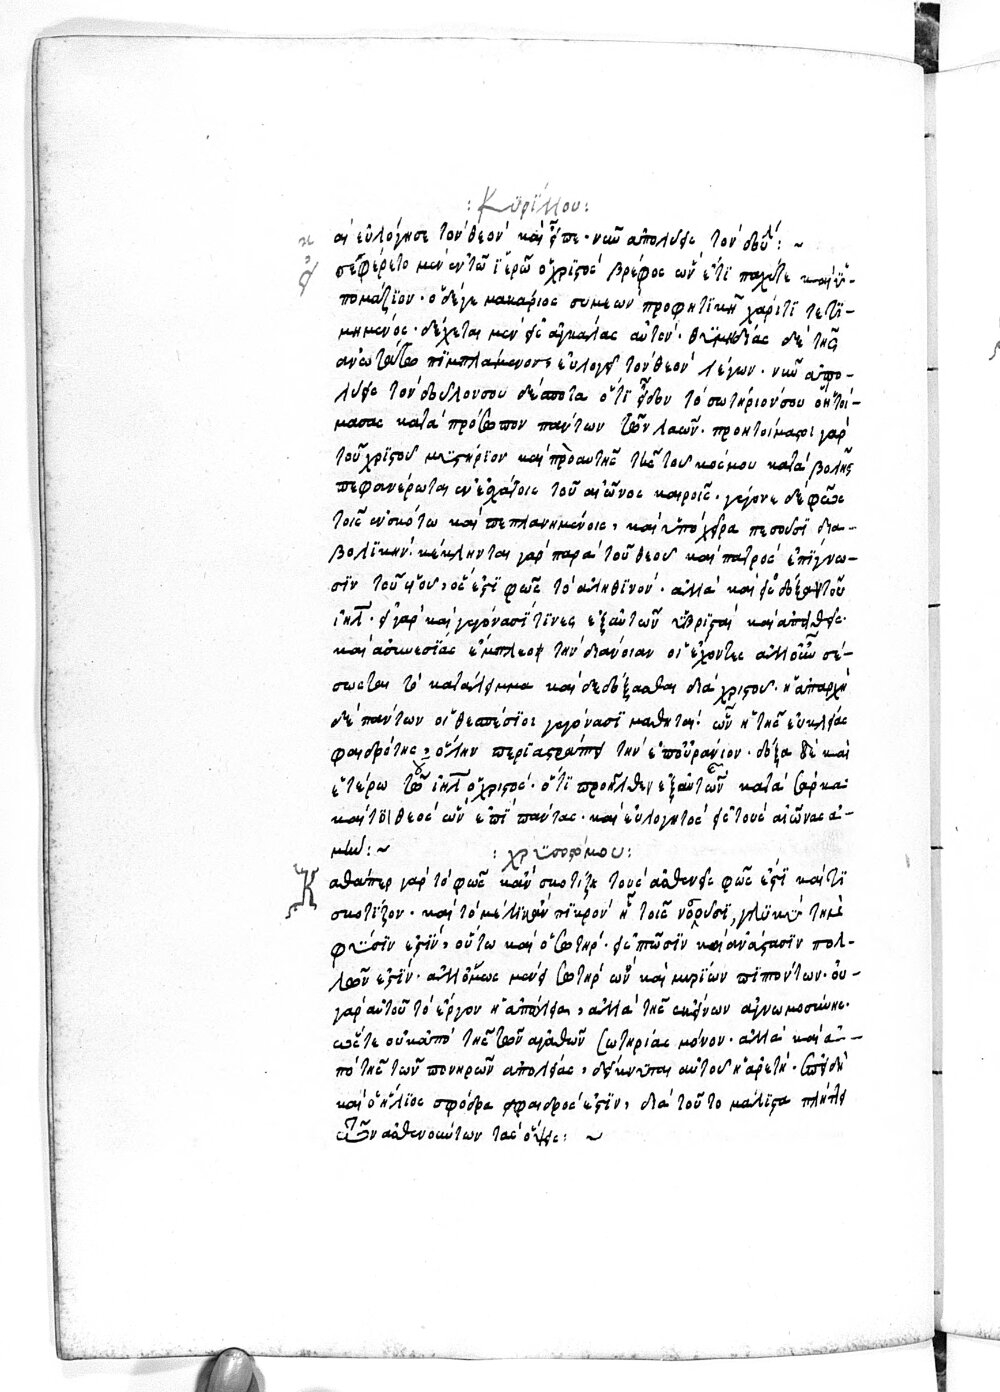 : Κυρίλλου :
κ αὶ εὐλόγησε τὸν θεὸν καὶ εἶπε · νῦν ἀπολύεις τὸν δοῦλ : ~
ὁ σεφέρετο μὲν ἐν τῶ ἱερῶ ὁ χριστὸς βρέφος ὢν ἔτι καὶ ὑ-
πομάζιον · ὁ δέ γε μακάριος συμεὼν προφητικῇ χάριτι τετι-
μημένος · δέχεται μὲν εἰς ἀγκάλας αὐτόν · θυμηδίας δὲ τῆς
ἀνωτάτω πιμπλάμενος, εὐλογεῖ τὸν θεὸν λέγων · νῦν ἀπο-
λύεις τὸν δοῦλον σου δέσποτα ὅτι εἶδον τὸ σωτήριόν σου ὃ ἡτοί-
μασας κατὰ πρόσωπον πάντων τῶν λαῶν · προητοίμασται γὰρ
τοῦ χριστοῦ μυστήριον καὶ πρὸ αὐτῆς τῆς τοῦ κόσμου καταβολῆς
πεφανέρωται ἐν ἐσχάτοις τοῦ αἰῶνος καιροῖς · γέγονε δὲ φῶς
τοῖς ἐν σκότω καὶ πεπλανημένοις, καὶ ὑπὸ χεῖρα πεσοῦσι δια-
βολικήν · κέκληνται γὰρ παρὰ τοῦ θεοῦ καὶ πατρὸς εἰς ἐπίγνω-
σιν τοῦ υἱοῦ, ὅς ἐστι φῶς τὸ ἀληθινόν · ἀλλὰ καὶ εἰς δόξαν τοῦ
ἰηλ · εἰ γὰρ καὶ γεγόνασί τινες ἐξ αὐτῶν ὑβρισταὶ καὶ ἀπειθεῖς
καὶ ἀσυνεσίας ἔμπλεων τὴν διάνοιαν οἱ ἔχοντες ἀλλ' οὖν σέ-
σωσται τὸ κατάλειμμα καὶ δεδόξασται διὰ χριστοῦ · ἡ ἀπαρχὴ
δὲ πάντων οἱ θεσπέσιοι γεγόνασι μαθηταὶ · ὧν ἡ τῆς εὐκλείας
φαιδρότης, ὅλην περιαστράπτει τὴν ἐπουράνιον · δόξα δὲ καὶ
ἑτέρω τοῦ ἰηλ ὁ χριστὸς · ὅτι προῆλθεν ἐξ αὐτῶν κατὰ σάρκα ·
καίτοι θεὸς ὢν ἐπὶ πάντας · καὶ εὐλογητὸς εἰς τοὺς αἰῶνας ἀ-
μήν : ~
: χρυσοστόμου :
Κ αθάπερ γὰρ τὸ φῶς κἂν σκοτίζη τοὺς ἀσθενεῖς φῶς ἐστὶ καίτι
σκοτίζον · καὶ τὸ μέλι κἂν πικρὸν ἦ τοῖς νοσοῦσι, γλυκὺ τὴν
φύσιν ἐστίν, οὕτω καὶ ὁ σωτήρ · εἰς πτῶσιν καὶ ἀνάστασιν πολ-
λῶν ἐστίν · ἀλλ' ὅμως μένει σωτὴρ ὢν καὶ μυρίων πιπτόντων · οὐ
γὰρ αὐτοῦ τὸ ἔργον ἡ ἀπώλεια, ἀλλὰ τῆς ἐκείνων ἀγνωμοσύνης ·
ὥστε οὐκ ἀπὸ τῆς τῶν ἀγαθῶν σωτηρίας μόνον · ἀλλὰ καὶ ἀ-
πὸ τῆς τῶν πονηρῶν ἀπωλείας, δείκνυται αὐτοῦ ἡ ἀρετή · ἐπειδὴ
καὶ ὁ ἥλιος σφόδρα φαιδρός ἐστιν, διὰ τοῦτο μάλιστα πλήττει
τῶν ἀσθενούντων τὰς ὄψεις : ~